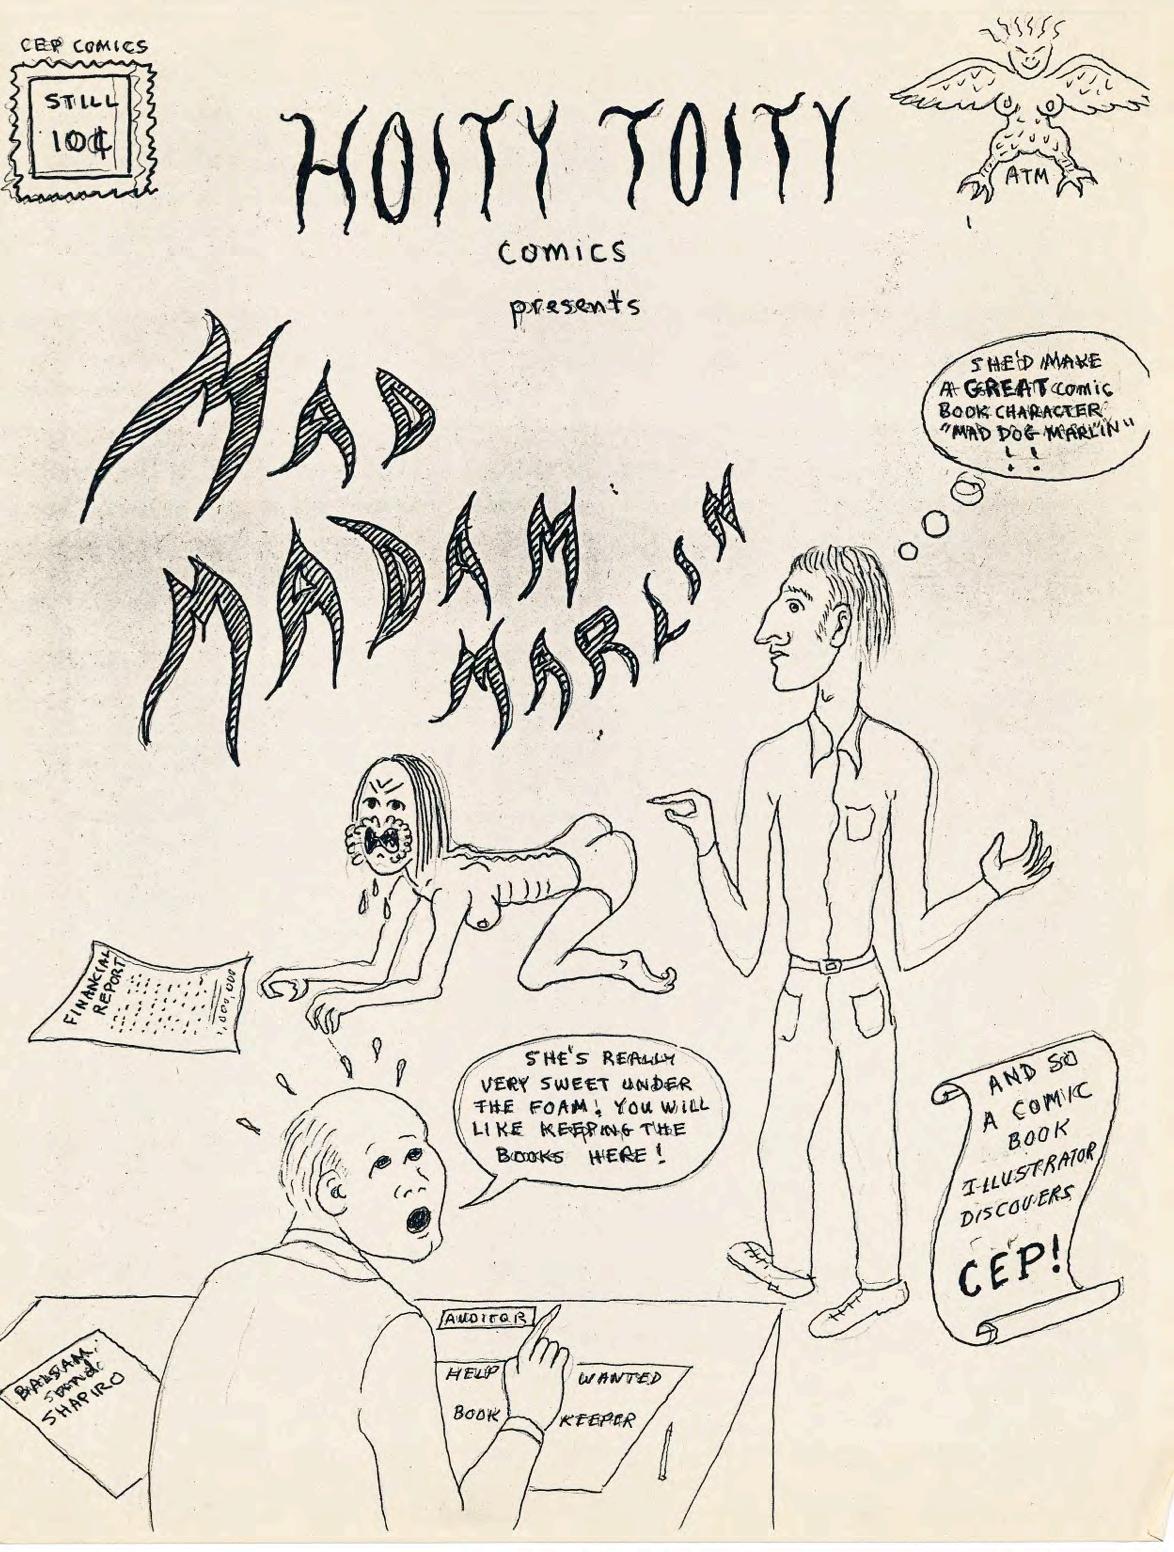 CEP COMICS
STILL
10¢
HOITY TOITY
comics
presents
ATM
MAD
MADAM
MARLIN
SHE'D MAKE
A GREAT comic
BOOK CHARACTER
"MAD DOG MARLIN"
!!
FINANCIAL
REPORT
1,000,000
SHE'S REALLY
VERY SWEET UNDER
THE FOAM! YOU WILL
LIKE KEEPING THE
BOOKS HERE!
AND SO
A COMIC
BOOK
ILLUSTRATOR
DISCOVERS
CEP!
AUDITOR
HELP WANTED
BOOK KEEPER
BALSAM
and
SHAPIRO